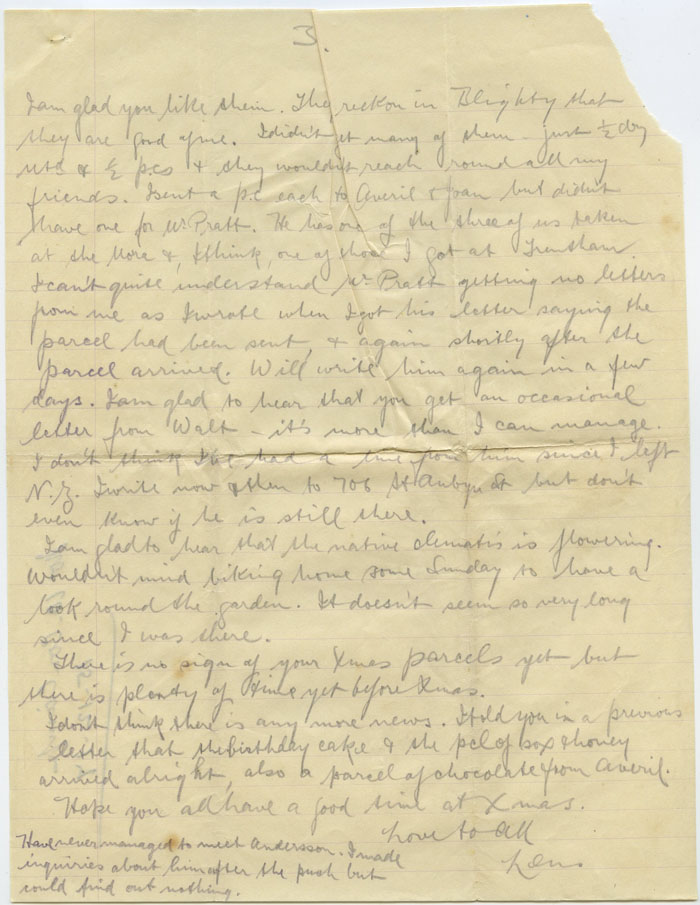 3.
I am glad you like them. They reckon in Blighty that
they are good of me. I didn't get many of them - just ½ doz
& ½ p.cs & they wouldn't reach round all my
friends. I sent a p.c. each to Averil & Joan but didn't
have one for Mr Pratt. He has one of the three of us taken
at the & I think one of those I got at Trentham.
I can't quite understand Mr Pratt getting no letters
from me as I wrote when I got his letter saying the
parcel had been sent, & again shortly after the
parcel arrived. Will write him again in a few
days. I am glad to hear that you get an occasional
letter from Walt - it's more than I can manage.
I don't think I've had a line from him since I left
N.Z. I write now & then to 706 St Aubyn St but don't
even know if he is still there.
I am glad to hear that the native clematis is flowering.
Wouldn't mind biking home some Sunday to have a
look round the garden. It doesn't seem so very long
since I was there.
There is no sign of your Xmas parcels yet but
there is plenty of time yet before Xmas.
I don't think there is any more news. I told you in a previous
letter that the birthday cake & the pcl of sox & honey
arrived alright, also a parcel of chocolate from Averil.
Hope you all have a good time at Xmas.
Love to all
Len
Have never managed to meet Andersson. I made
inquiries about him after the push but
could find out nothing.